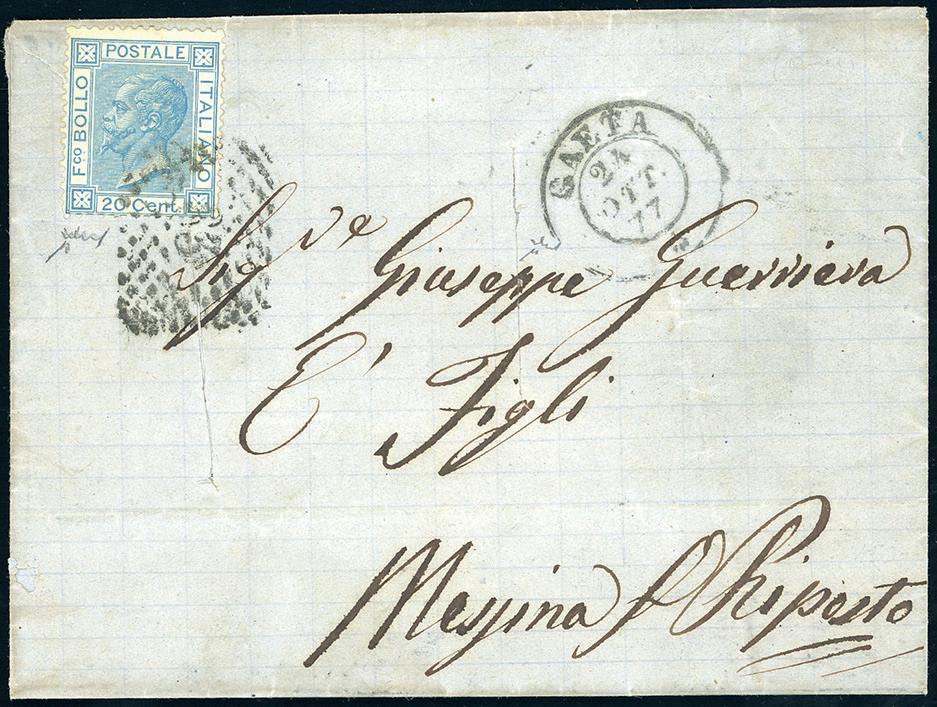 POSTALE
Fco BOLLO
ITALIANO
20 Cent.
GAETA
24
OTT.
77
Sig.re Giuseppe Guerriera
E' Figli
Messina p Riposto